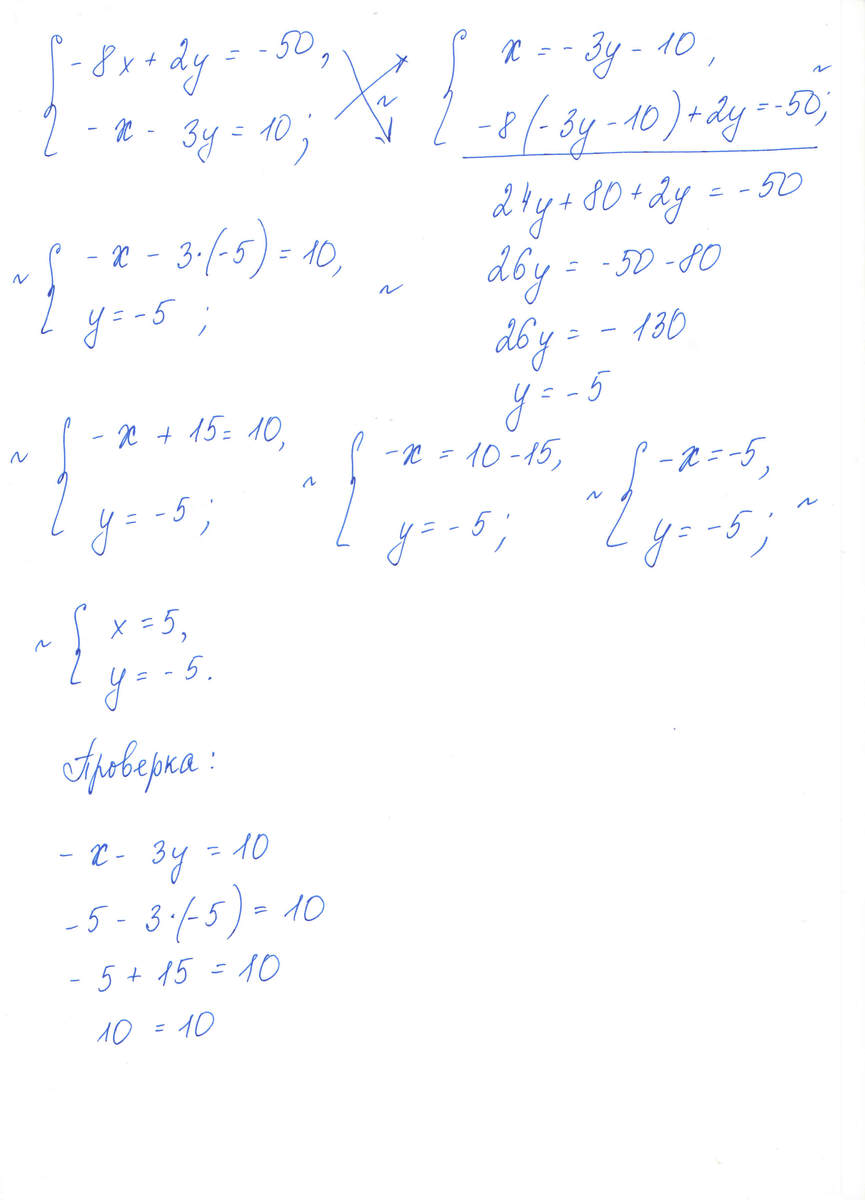 { -8x + 2y = -50,
- x - 3y = 10;
~
{ x = -3y - 10,
-8(-3y - 10) + 2y = -50; ~
24y + 80 + 2y = -50
26y = -50 - 80
26y = - 130
y = -5
~ { -x - 3·(-5) = 10,
y = -5 ; ~
~ { -x + 15 = 10,
y = -5;
~ { -x = 10 - 15,
y = -5;
~ { -x = -5,
y = -5; ~
~ { x = 5,
y = -5.
Проверка:
- x - 3y = 10
-5 - 3·(-5) = 10
- 5 + 15 = 10
10 = 10